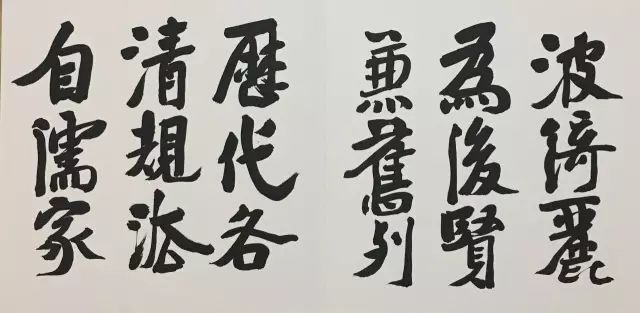 波綺麗
為後賢
兼舊列
歷代各
清規法
自儒家